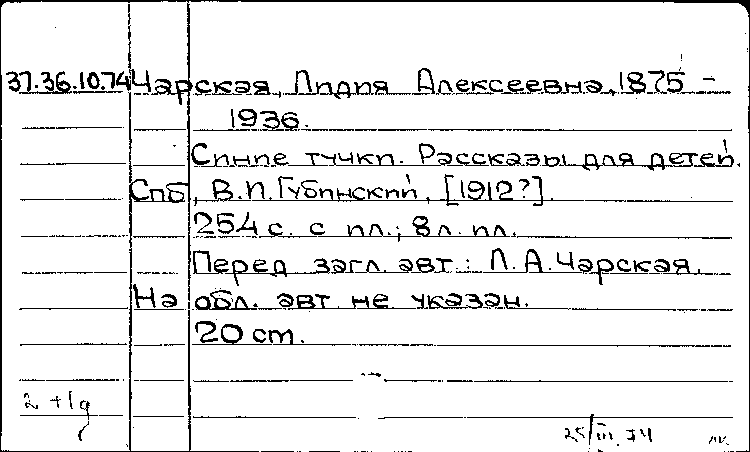 37.36.10.74 Чарская, Лидия Алексеевна, 1875 -
1936.
Синие тучки. Рассказы для детей.
Спб, В.И. Губинский, [1912?].
254 с. с ил.; 8 л. ил.
Перед загл. авт.: Л.А. Чарская.
На обл. авт. не указан.
20 cm.
2 + 1 д
25/III.74